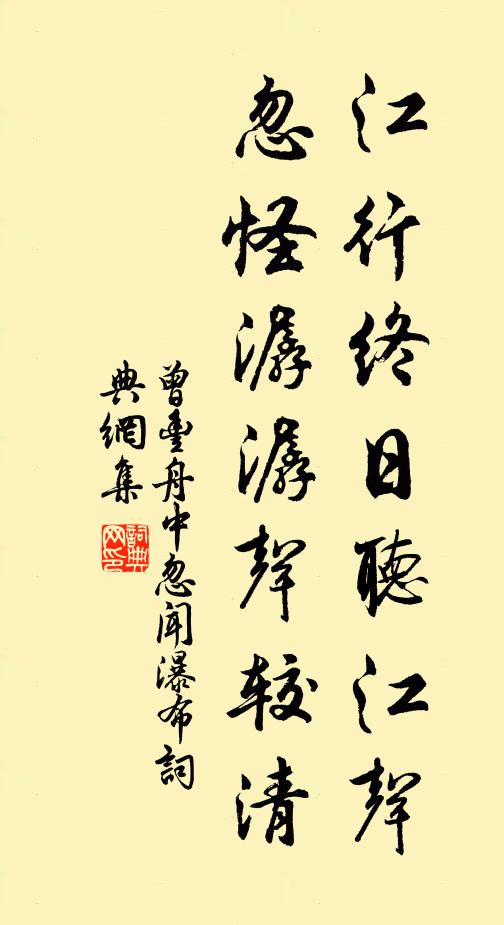 江行終日聽江聲
忽怪潺潺聲較清
曾豐舟中忽聞瀑布詞
典網集
詞典
网印